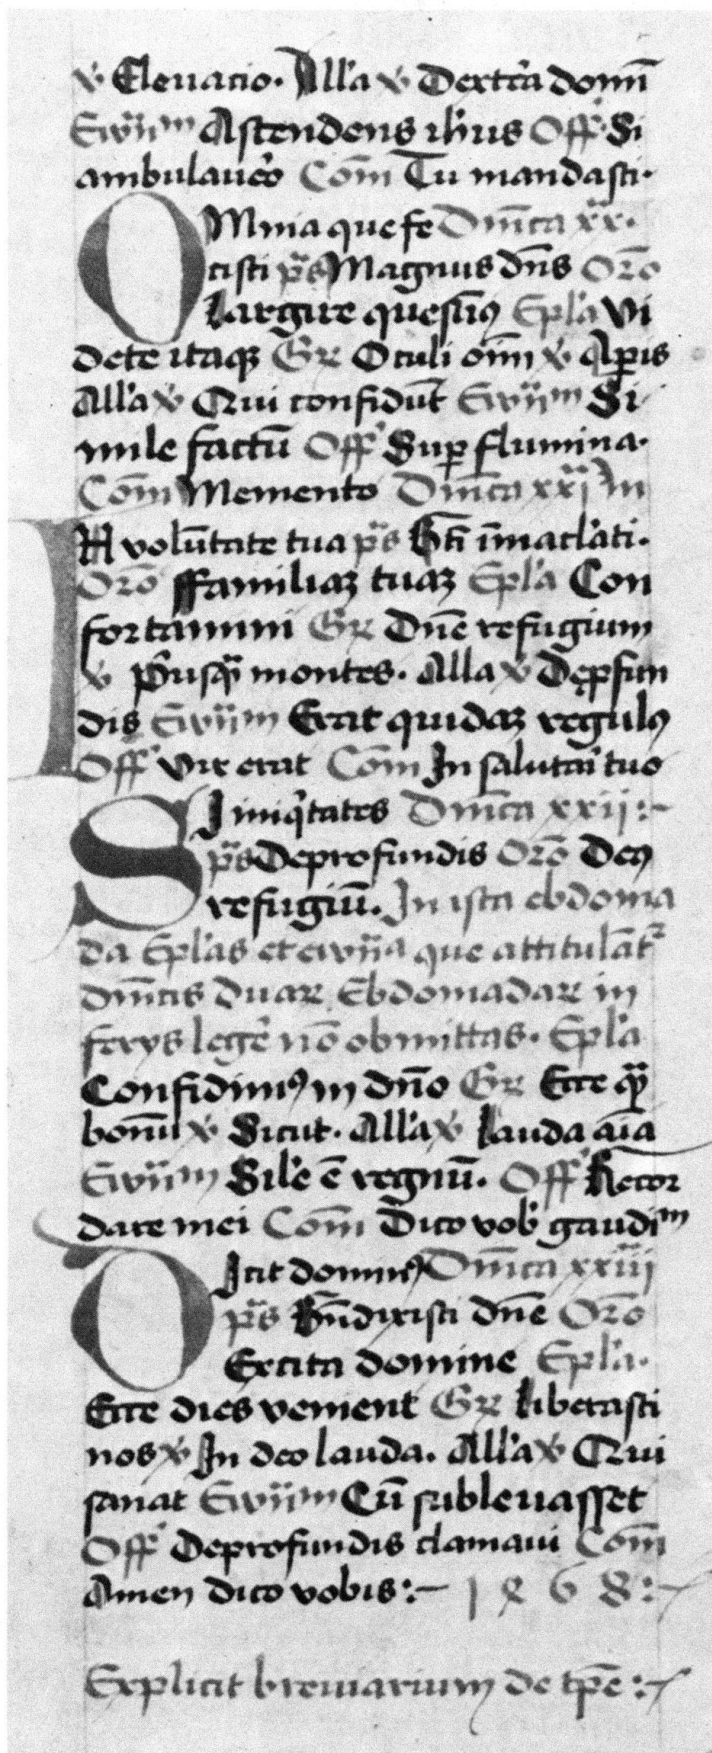 ℣ Eleuacio. All'a ℣ Dextera domī
Ewīīm Ascendens ih'us Off' Si
ambulauero Cōm Tu mandasti.
OMnia que fe Dm̄ca xx.
cisti p̄s Magnus dn̄s Orō
Largire quesum9 Epl'a Vi
dete itaqꝫ Gr Oculi oīm ℣ Aperis
All'a ℣ Qui confidūt Ewīīm Si
mile factū Off' Super flumina.
Cōm Memento Dm̄ca xxi In
IN volūtate tua p̄s Bt̄i īmacl'ati.
Orō ffamiliaꝫ tuaꝫ Epl'a Con
fortamini Gr Dn̄e refugium
℣ P'usq̄ montes. Alla ℣ De ꝓfun
dis Ewīīm Erat quidaꝫ regul9
Off' Vir erat Cōm In salutari tuo
SI iniq'tates Dm̄ca xxii :~
p̄s De profundis Orō De9
refugiū. In ista ebdoma
da Epl'as et ewīīa que attitulāt᷑
dm̄cis duar Ebdomadar in
ferys leg'e nō obmittas. Epl'a
Confidim9 in dn̄o Gr Ecce q̄
bonū ℣ Sicut. All'a ℣ Lauda aīa
Ewīīm Sil'e ē regnū. Off' Recor
dare mei Cōm Dico vob' gaudiᵐ
DIcit domin9 Dm̄ca xxiii
p̄s Bn̄dixisti dn̄e Orō
Excita domine Epl'a.
Ecce dies venient Gr Liberasti
nos ℣ In deo lauda. All'a ℣ Qui
sanat Ewīīm Cū subleuasset
Off' De profundis clamaui Cōm
Amen dico vobis :~ 1468 :~
Explicit breuiarium de tp̄e :~